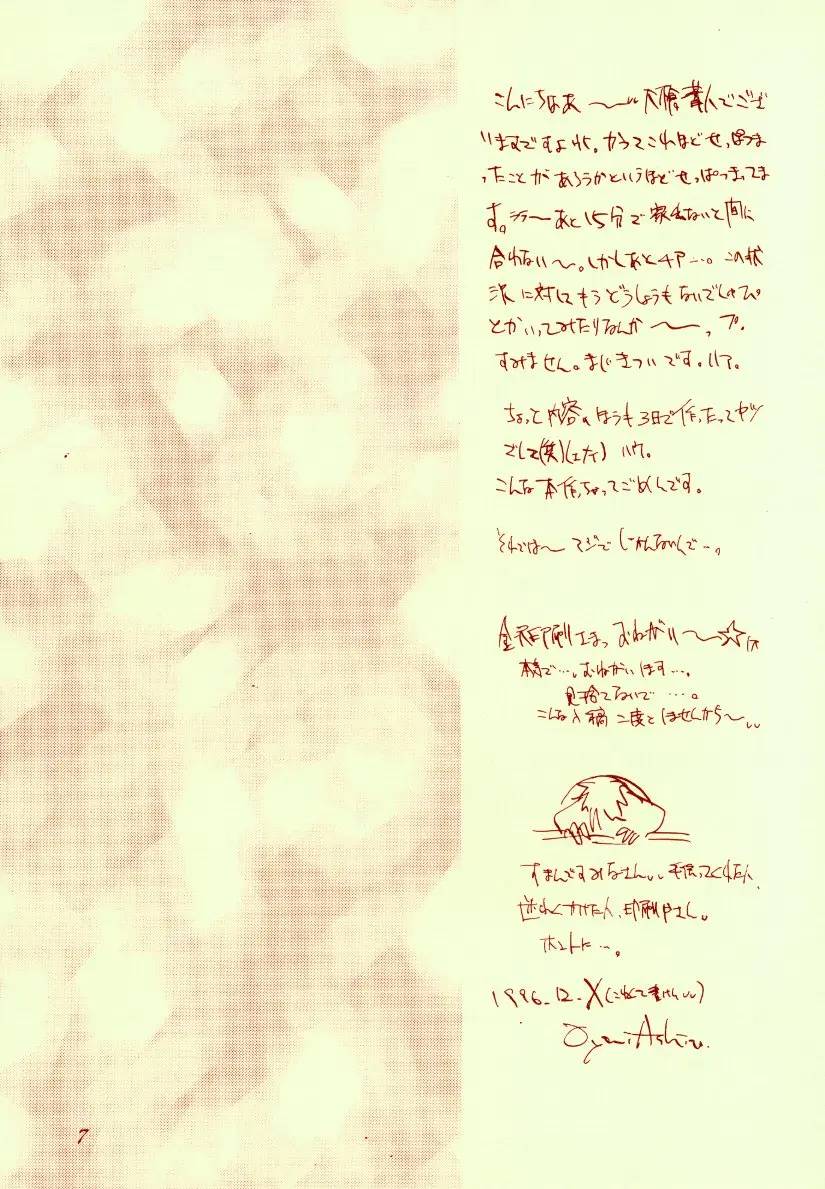 こんにちなあ〜
いますですよ。かつてこれほどせっぱつま
ったことがあろうかというほどせっぱつまってま
す。あと15分で家出ないと間に
合わない〜。しかしあと4P…。この状
況に対してもうどうしようもないでしゃぴ
とかいってみたりなんか〜っ、プ。
すみません。まじきついです。ハア。
ちょっと内容のほうも3日で作ったってヤツ
でして(笑)
こんな本作っちゃってごめんです。
それでは〜マジでじかんないんで…。
金沢印刷さまっおねがい〜☆
おねがいします…。
見捨てないで…。
こんな入稿二度としませんから〜
すまんですみなさん、手伝ってくれた人、
迷わくかけた人、印刷屋さん。
ホントに…。
1996.12.X(こわくて書けん)
Oyumi Ashiru.
7